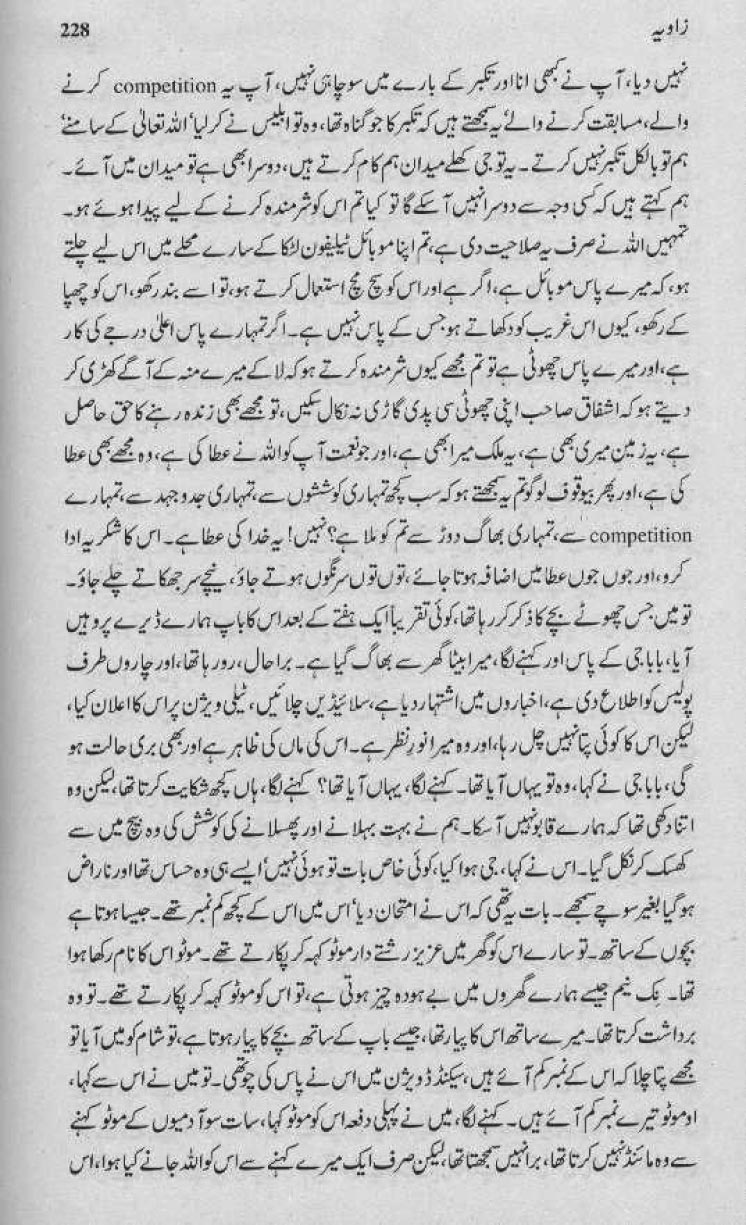 زاویہ 228
نہیں دیا، آپ نے کبھی انا اور تکبر کے بارے میں سوچا ہی نہیں، آپ یہ competition کرنے
والے، مسابقت کرنے والے‘ یہ سمجھتے ہیں کہ تکبر کا جو گناہ تھا، وہ تو ابلیس نے کر لیا‘ اللہ تعالیٰ کے سامنے‘
ہم تو بالکل تکبر نہیں کرتے۔ یہ تو جی کھلے میدان ہم کام کرتے ہیں، دوسرا بھی ہے تو میدان میں آئے۔
ہم کہتے ہیں کہ کسی وجہ سے دوسرا نہیں آ سکے گا تو کیا تم اس کو شرمندہ کرنے کے لیے پیدا ہوئے ہو۔
تمہیں اللہ نے صرف یہ صلاحیت دی ہے، تم اپنا موبائل ٹیلیفون لٹکا کے سارے محلے میں اس لیے چلتے
ہو، کہ میرے پاس موبائل ہے، اگر ہے اور اس کو سچ مچ استعمال کرتے ہو، تو اسے بند رکھو، اس کو چھپا
کے رکھو، کیوں اس غریب کو دکھاتے ہو جس کے پاس نہیں ہے۔ اگر تمہارے پاس اعلیٰ درجے کی کار
ہے، اور میرے پاس چھوٹی ہے تو تم مجھے کیوں شرمندہ کرتے ہو کہ لا کے میرے منہ کے آگے کھڑی کر
دیتے ہو کہ اشفاق صاحب اپنی چھوٹی سی پدی گاڑی نہ نکال سکیں، تو مجھے بھی زندہ رہنے کا حق حاصل
ہے، یہ زمین میری بھی ہے، یہ ملک میرا بھی ہے، اور جو نعمت آپ کو اللہ نے عطا کی ہے، وہ مجھے بھی عطا
کی ہے، اور پھر بیوقوف لوگو تم یہ سمجھتے ہو کہ سب کچھ تمہاری کوششوں سے، تمہاری جدوجہد سے، تمہارے
competition سے، تمہاری بھاگ دوڑ سے تم کو ملا ہے؟ نہیں! یہ خدا کی عطا ہے۔ اس کا شکریہ ادا
کرو، اور جوں جوں عطا میں اضافہ ہوتا جائے، توں توں سرنگوں ہوتے جاؤ، نیچے سر جھکاتے چلے جاؤ۔
تو میں جس چھوٹے بچے کا ذکر کر رہا تھا، کوئی تقریباً ایک ہفتے کے بعد اس کا باپ ہمارے ڈیرے پر وہیں
آیا، بابا جی کے پاس اور کہنے لگا، میرا بیٹا گھر سے بھاگ گیا ہے۔ برا حال، رو رہا تھا، اور چاروں طرف
پولیس کو اطلاع دی ہے، اخباروں میں اشتہار دیا ہے، سلائیڈیں چلائیں، ٹیلی ویژن پر اس کا اعلان کیا،
لیکن اس کا کوئی پتا نہیں چل رہا، اور وہ میرا نور نظر ہے۔ اس کی ماں کی ظاہر ہے اور بھی بری حالت ہو
گی، بابا جی نے کہا، وہ تو یہاں آیا تھا۔ کہنے لگا، یہاں آیا تھا؟ کہنے لگا، ہاں کچھ شکایت کرتا تھا، لیکن وہ
اتنا دکھی تھا کہ ہمارے قابو نہیں آ سکا۔ ہم نے بہت بہلانے اور پھسلانے کی کوشش کی وہ بیچ میں سے
کھسک کر نکل گیا۔ اس نے کہا، جی ہوا کیا، کوئی خاص بات تو ہوئی نہیں‘ ایسے ہی وہ حساس تھا اور ناراض
ہو گیا بغیر سوچے سمجھے۔ بات یہ تھی کہ اس نے امتحان دیا‘ اس میں اس کے کچھ کم نمبر تھے۔ جیسا ہوتا ہے
بچوں کے ساتھ۔ تو سارے اس کو گھر میں عزیز رشتے دار موٹو کہہ کر پکارتے تھے۔ موٹو اس کا نام رکھا ہوا
تھا۔ نک نیم جیسے ہمارے گھروں میں بے ہودہ چیز ہوتی ہے، تو اس کو موٹو کہہ کر پکارتے تھے۔ تو وہ
برداشت کرتا تھا۔ میرے ساتھ اس کا پیار تھا، جیسے باپ کے ساتھ بچے کا پیار ہوتا ہے، تو شام کو میں آیا تو
مجھے پتا چلا کہ اس کے نمبر کم آئے ہیں، سیکنڈ ڈویژن میں اس نے پاس کی چوتھی۔ تو میں نے اس سے کہا،
او موٹو تیرے نمبر کم آئے ہیں۔ کہنے لگا، میں نے پہلی دفعہ اس کو موٹو کہا، سات سو آدمیوں کے موٹو کہنے
سے وہ مائنڈ نہیں کرتا تھا، برا نہیں سمجھتا تھا، لیکن صرف ایک میرے کہنے سے اس کو اللہ جانے کیا ہوا، اس